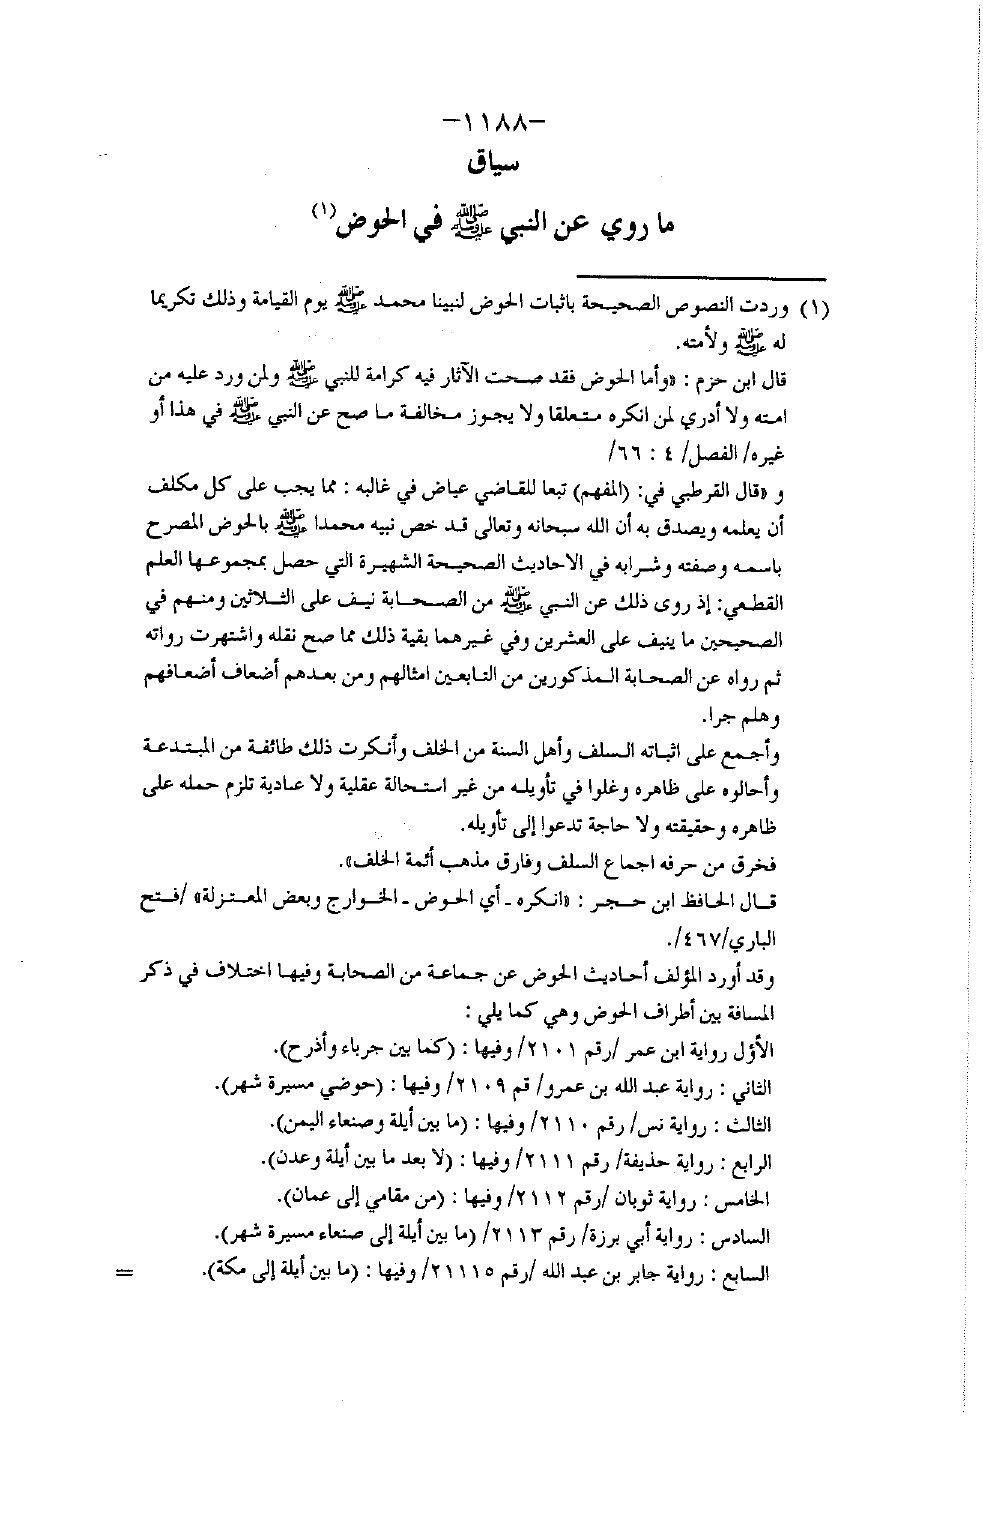 -١١٨٨-
سياق
ما روي عن النبي ﷺ في الحوض(١)
(١) وردت النصوص الصحيحة باثبات الحوض لنبينا محمد ﷺ يوم القيامة وذلك تكريما
له ﷺ ولأمته.
قال ابن حزم : «وأما الحوض فقد صحت الآثار فيه كرامة للنبي ﷺ ولمن ورد عليه من
امته ولا أدري لمن انكره متعلقا ولا يجوز مخالفة ما صح عن النبي ﷺ في هذا أو
غيره/ الفصل/ ٤ : ٦٦/
و «قال القرطبي في: (المفهم) تبعا للقاضي عياض في غالبه : مما يجب على كل مكلف
أن يعلمه ويصدق به أن الله سبحانه وتعالى قد خص نبيه محمدا ﷺ بالحوض المصرح
باسمه وصفته وشرابه في الاحاديث الصحيحة الشهيرة التي حصل بمجموعها العلم
القطعي: إذ روى ذلك عن النبي ﷺ من الصحابة نيف على الثلاثين ومنهم في
الصحيحين ما ينيف على العشرين وفي غيرهما بقية ذلك مما صح نقله واشتهرت رواته
ثم رواه عن الصحابة المذكورين من التابعين امثالهم ومن بعدهم أضعاف أضعافهم
وهلم جرا.
وأجمع على اثباته السلف وأهل السنة من الخلف وأنكرت ذلك طائفة من المبتدعة
وأحالوه على ظاهره وغلوا في تأويله من غير استحالة عقلية ولا عادية تلزم حمله على
ظاهره وحقيقته ولا حاجة تدعوا إلى تأويله.
فخرق من حرفه اجماع السلف وفارق مذهب أئمة الخلف».
قال الحافظ ابن حجر : «انكره - أي الحوض - الخوارج وبعض المعتزلة» /فتح
الباري/٤٦٧/.
وقد أورد المؤلف أحاديث الحوض عن جماعة من الصحابة وفيها اختلاف في ذكر
المسافة بين أطراف الحوض وهي كما يلي :
الأؤل رواية ابن عمر /رقم ٢١٠١/ وفيها : (كما بين جرباء وأذرح).
الثاني : رواية عبد الله بن عمرو/ قم ٢١٠٩/ وفيها : (حوضي مسيرة شهر).
الثالث : رواية نس/ رقم ٢١١٠/ وفيها : (ما بين أيلة وصنعاء اليمن).
الرابع : رواية حذيفة/ رقم ٢١١١/ وفيها : (لا بعد ما بين أيلة وعدن).
الخامس : رواية ثوبان /رقم ٢١١٢/ وفيها : (من مقامي إلى عمان).
السادس : رواية أبي برزة/ رقم ٢١١٣/ (ما بين أيلة إلى صنعاء مسيرة شهر).
السابع : رواية جابر بن عبد الله /رقم ٢١١١٥/ وفيها : (ما بين أيلة إلى مكة). =